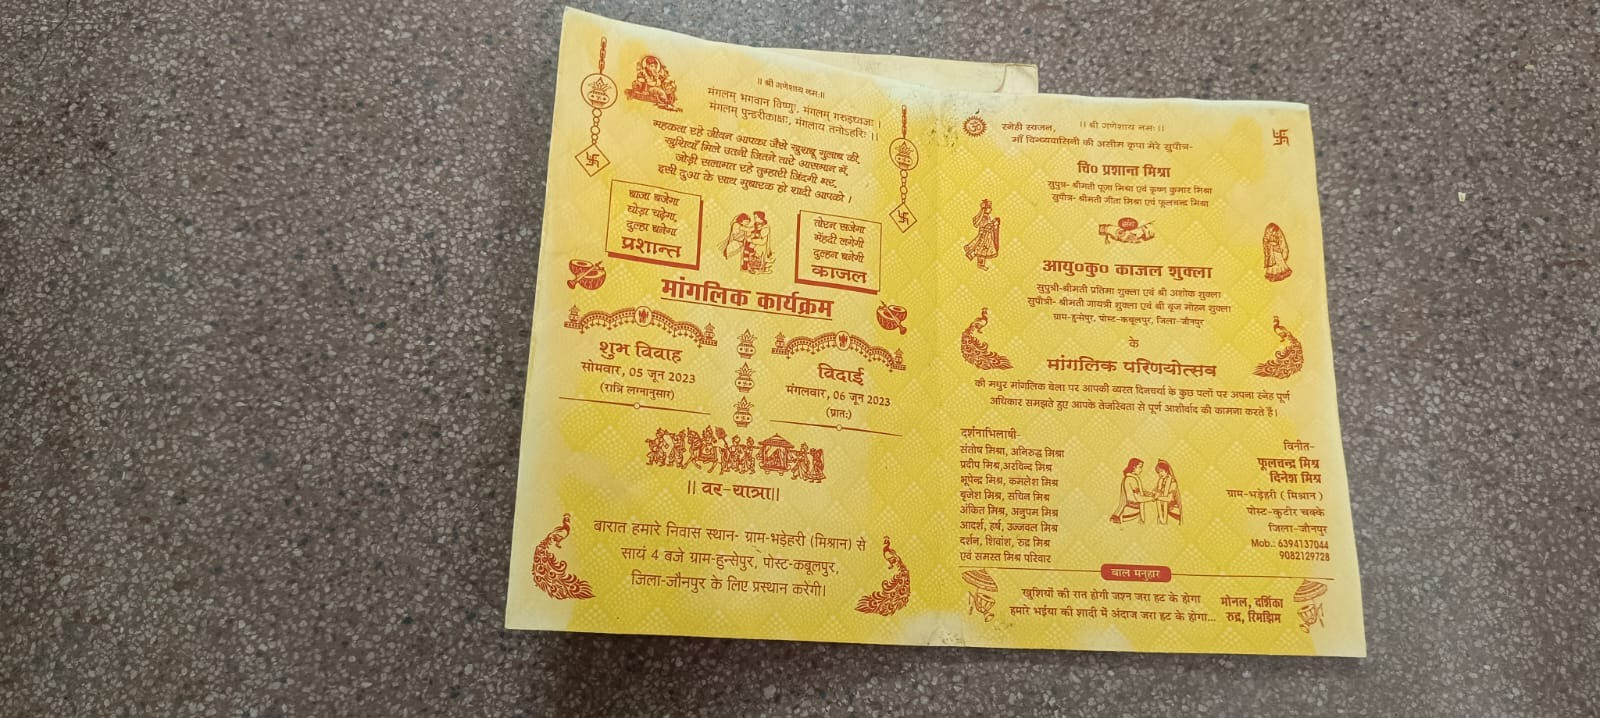 ॥ श्री गणेशाय नमः॥
मंगलम् भगवान विष्णु, मंगलम् गरुड़ध्वजः।
मंगलम् पुन्डरीकाक्षः, मंगलाय तनोऽहरिः ।।
महकता रहे जीवन आपका जैसे खुशबू गुलाब की,
खुशियाँ मिले उतनी जितने तारे आसमान में,
जोड़ी सलामत रहे तुम्हारी जिंदगी भर,
इसी दुआ के साथ मुबारक हो शादी आपको।
बाजा बजेगा
घोड़ा चढ़ेगा,
दुल्हा बनेगा
प्रशान्त
तोरन सजेगा
मेंहदी लगेगी
दुल्हन बनेगी
काजल
मांगलिक कार्यक्रम
शुभ विवाह
सोमवार, 05 जून 2023
(रात्रि लग्नानुसार)
विदाई
मंगलवार, 06 जून 2023
(प्रातः)
|| वर-यात्रा||
बारात हमारे निवास स्थान- ग्राम-भड़ेहरी (मिश्रान) से
सायं 4 बजे ग्राम-हुन्सेपुर, पोस्ट-कबूलपुर,
जिला-जौनपुर के लिए प्रस्थान करेगी।
॥ श्री गणेशाय नमः॥
स्नेही स्वजन,
माँ विन्ध्यवासिनी की असीम कृपा मेरे सुपौत्र-
चि० प्रशान्त मिश्रा
सुपुत्र- श्रीमती पूजा मिश्रा एवं कृष्ण कुमार मिश्रा
सुपौत्र- श्रीमती गीता मिश्रा एवं फूलचन्द्र मिश्रा
संग
आयु०कु० काजल शुक्ला
सुपुत्री-श्रीमती प्रतिमा शुक्ला एवं श्री अशोक शुक्ला
सुपौत्री- श्रीमती गायत्री शुक्ला एवं श्री बृज मोहन शुक्ला
ग्राम-हुन्सेपुर, पोस्ट-कबूलपुर, जिला-जौनपुर
के
मांगलिक परिणयोत्सव
की मधुर मांगलिक बेला पर आपकी व्यस्त दिनचर्या के कुछ पलों पर अपना स्नेह पूर्ण
अधिकार समझते हुए आपके तेजस्विता से पूर्ण आशीर्वाद की कामना करते है।
दर्शनाभिलाषी-
संतोष मिश्रा, अनिरुद्ध मिश्रा
प्रदीप मिश्र,अरविन्द मिश्र
भूपेन्द्र मिश्र, कमलेश मिश्र
बृजेश मिश्र, सचिन मिश्र
अंकित मिश्र, अनुपम मिश्र
आदर्श, हर्ष, उज्जवल मिश्र
दर्शन, शिवांश, रुद्र मिश्र
एवं समस्त मिश्र परिवार
विनीत-
फूलचन्द्र मिश्र
दिनेश मिश्र
ग्राम-भड़ेहरी ( मिश्रान )
पोस्ट-कुटीर चक्के
जिला-जौनपुर
Mob.: 6394137044
9082129728
बाल मनुहार
खुशियों की रात होगी जश्न जरा हट के होगा
हमारे भईया की शादी में अंदाज जरा हट के होगा...
मोनल, दर्शिका
रुद्र, रिमझिम